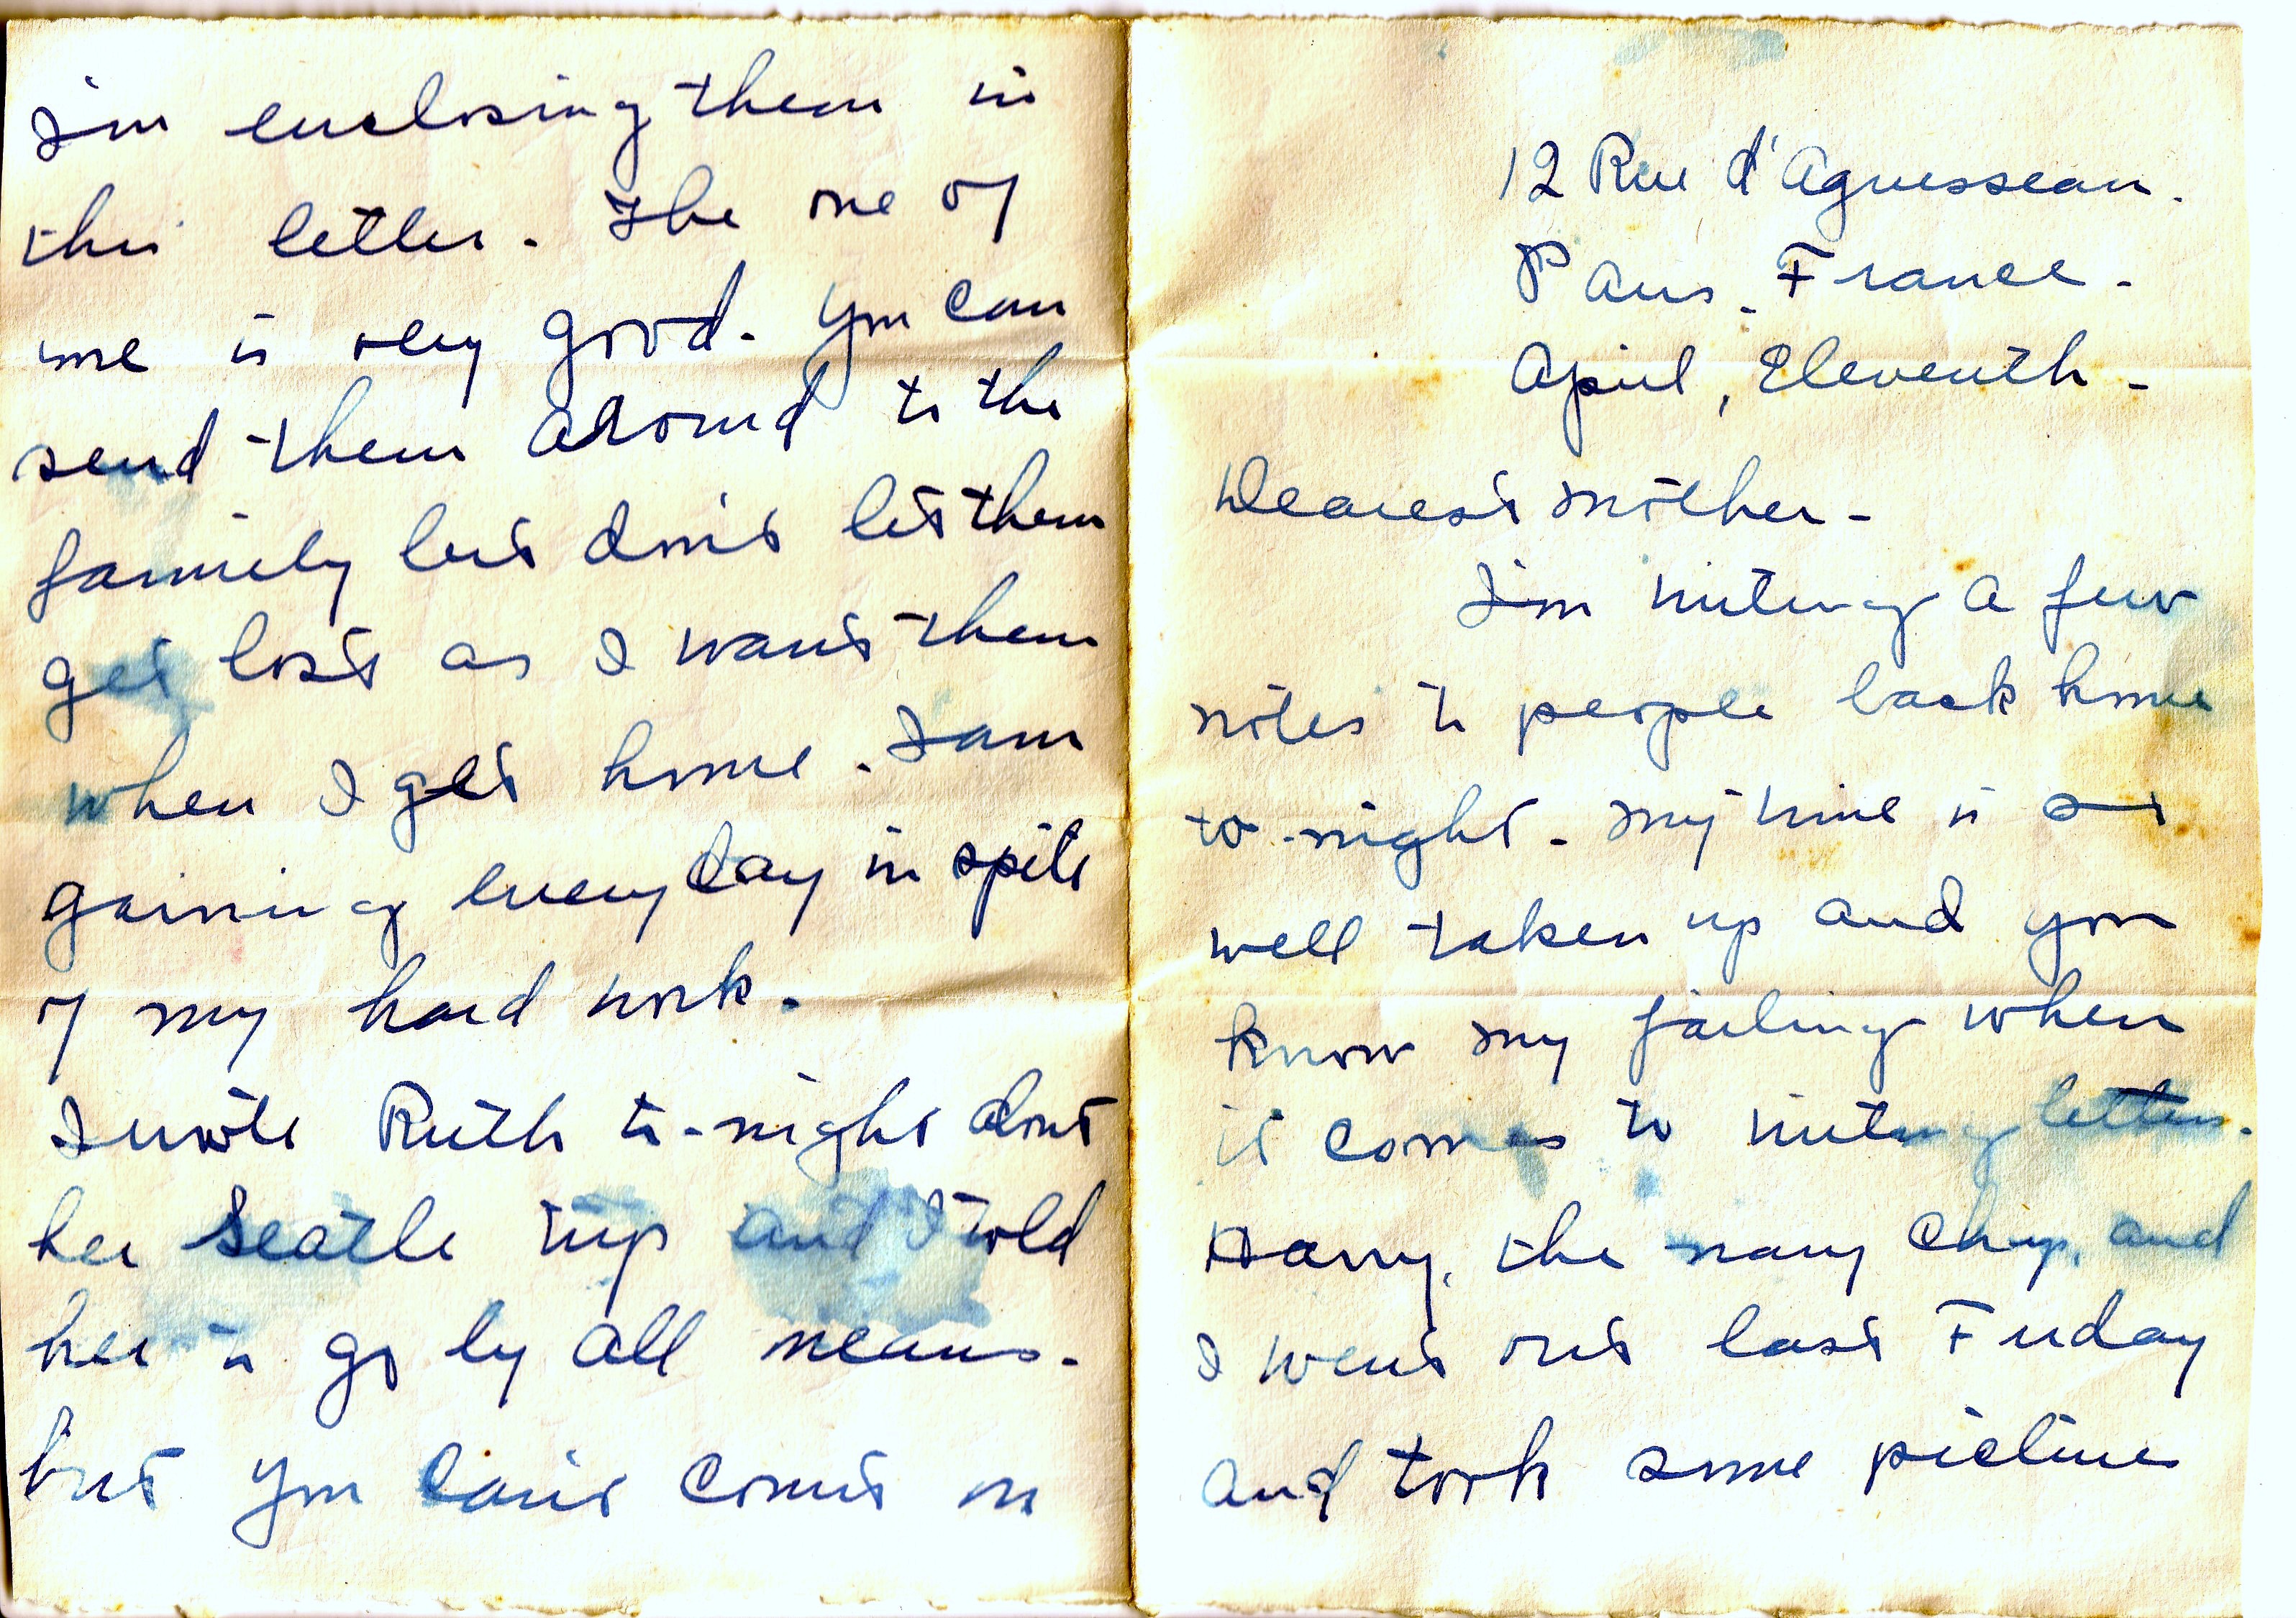 12 Rue d'Aguesseau.
Paris. France.
April, Eleventh -
Dearest Mother -
I'm writing a few
notes to people back home
to-night. My time is so
well taken up and you
know my failing when
it comes to writing letters.
Harry, the navy chap, and
I went out last Friday
and took some pictures
I'm enclosing them in
this letter. The one of
me is very good. You can
send them around to the
family but don't let them
get lost as I want them
when I get home. I am
gaining every day in spite
of my hard work.
I wrote Ruth to-night about
her Seatle trip and I told
her to go by all means.
but you can't count on